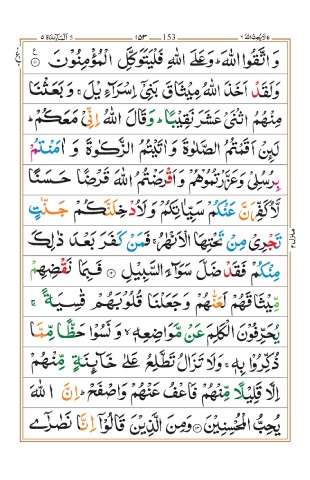 153 ١٥٣
وَ اتَّقُوا اللّٰهَ ؕ وَعَلَى اللّٰهِ فَلْيَتَوَكَّلِ الْمُؤْمِنُوْنَ
وَلَقَدْ اَخَذَ اللّٰهُ مِيْثَاقَ بَنِىْۤ اِسْرَآءِيْلَ ۚ وَبَعَثْنَا
مِنْهُمُ اثْنَىْ عَشَرَ نَقِيْبًا ؕ وَقَالَ اللّٰهُ اِنِّىْ مَعَكُمْ ؕ
لَٮِٕنْ اَقَمْتُمُ الصَّلٰوةَ وَاٰتَيْتُمُ الزَّكٰوةَ وَاٰمَنْتُمْ
بِرُسُلِىْ وَعَزَّرْتُمُوْهُمْ وَاَقْرَضْتُمُ اللّٰهَ قَرْضًا حَسَنًا
لَّاُكَفِّرَنَّ عَنْكُمْ سَيِّاٰتِكُمْ وَلَاُدْخِلَنَّكُمْ جَنّٰتٍ
تَجْرِىْ مِنْ تَحْتِهَا الْاَنْهٰرُ ۚ فَمَنْ كَفَرَ بَعْدَ ذٰلِكَ
مِنْكُمْ فَقَدْ ضَلَّ سَوَآءَ السَّبِيْلِ ۝ فَبِمَا نَقْضِهِمْ
مِّيْثَاقَهُمْ لَعَنّٰهُمْ وَجَعَلْنَا قُلُوْبَهُمْ قٰسِيَةً ۚ
يُحَرِّفُوْنَ الْكَلِمَ عَنْ مَّوَاضِعِهٖ ۙ وَ نَسُوْا حَظًّا مِّمَّا
ذُكِّرُوْا بِهٖ ۚ وَلَا تَزَالُ تَطَّلِعُ عَلٰى خَآٮِٕنَةٍ مِّنْهُمْ
اِلَّا قَلِيْلًا مِّنْهُمْ فَاعْفُ عَنْهُمْ وَاصْفَحْ ؕ اِنَّ اللّٰهَ
يُحِبُّ الْمُحْسِنِيْنَ ۝ وَمِنَ الَّذِيْنَ قَالُوْۤا اِنَّا نَصٰرٰٓى